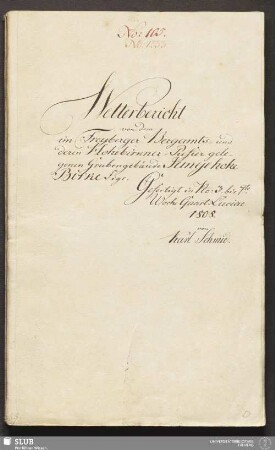 No: 165.
Wetterbericht
von dem
im Freyberger Bergamts- und
deren Hohebirkner Refier gele-
genen Grubengebäude Junge hohe
Birke Fdgr.
Gefertigt in No. 3 bis 7te
Woche Quart. Luciae
1808
von
Karl Schmie.
SLUB
Wir führen Wissen.